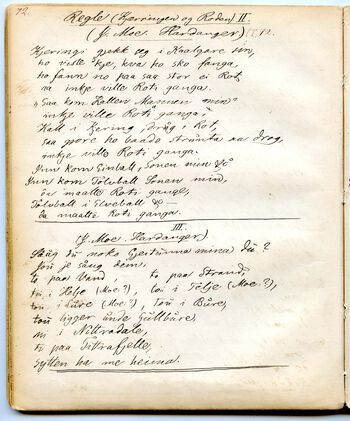 72.
Regle (Kjerringen og Roden) II.
(J. Moe. Hardanger)
Kjeringi gjekk seg i Kaalgare sin,
ho ville kje, kva ho sko fanga,
ho fann no paa saa stor ei Rot,
ra inkje ville Roti ganga.
"Saa kom Kallen Mannen min"
inkje ville Roti ganga;
Kall i Kjering, dråg i Rot,
saa gore ho baade strunta aa drog,
inkje ville Roti ganga.
Inn kom Einball, Sonen min &c
Inn kom Tolvball Sonen min,
da maatte Roti gange,
Tolvball i Elveball &—
da maatte Roti ganga.
III.
(J. Moe. Hardanger)
Saag du noko Gjeitunna mina Du?
Jou je såug dem,
to paa Vand, to paa Strand,
tou i Hølje (Moe?), tou i Telje (Moe?),
tou i Lure (Moe?), Tou i Bure,
tou ligger unde Gullbure,
ni i Nittradale,
ti paa Tittrafjelle,
Gytten ha me heima.